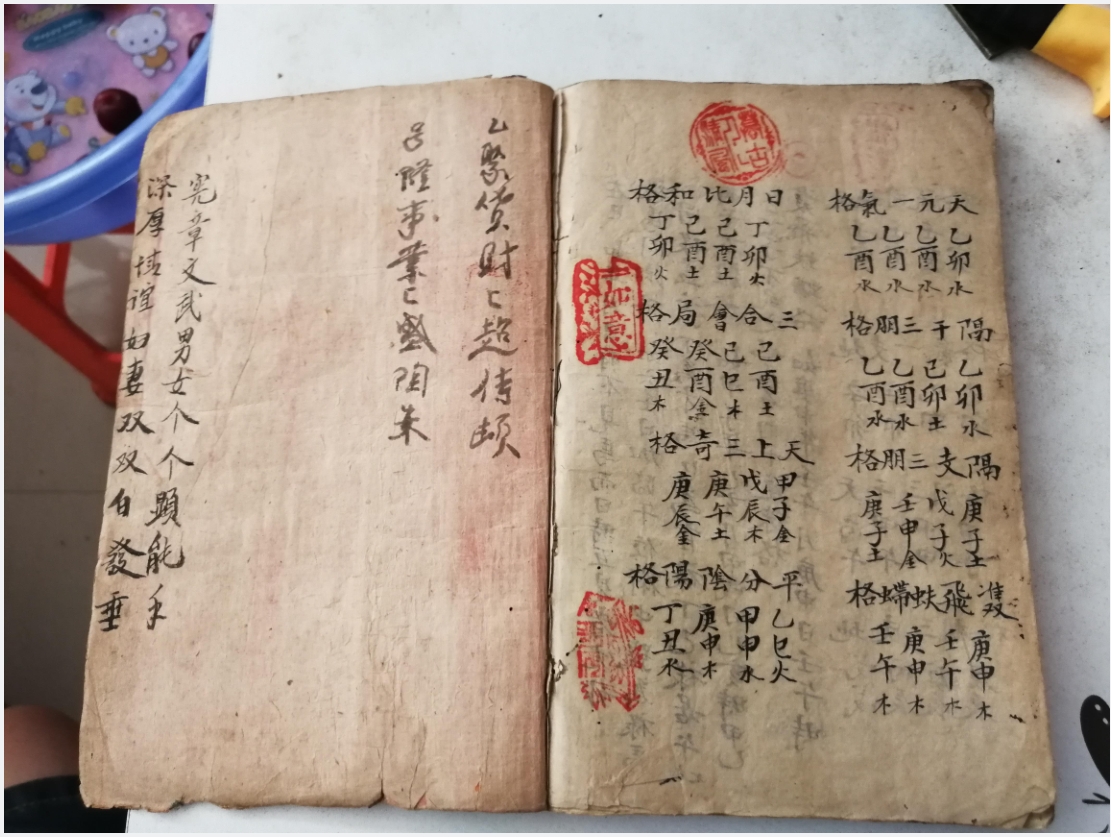 天元一氣格
乙卯水
乙酉水
乙酉水
乙酉水
隔干三朋格
乙卯水
己卯土
乙酉水
乙酉水
隔支三朋格
庚子土
戊子火
壬申金
庚子土
雙飛蚨格
庚申木
壬午木
庚申木
壬午木
日月比和格
丁卯火
己酉土
己酉土
丁卯火
三合會局格
己酉土
己巳木
癸酉金
癸丑木
天上三奇格
甲子金
戊辰木
庚午土
庚辰金
平分陰陽格
乙巳火
甲申水
庚申木
丁丑水
如意
聚貨財〻超倚頓
事業〻盛陶朱
憲章文武男女个个顯能手
深厚情誼妻双双白發垂